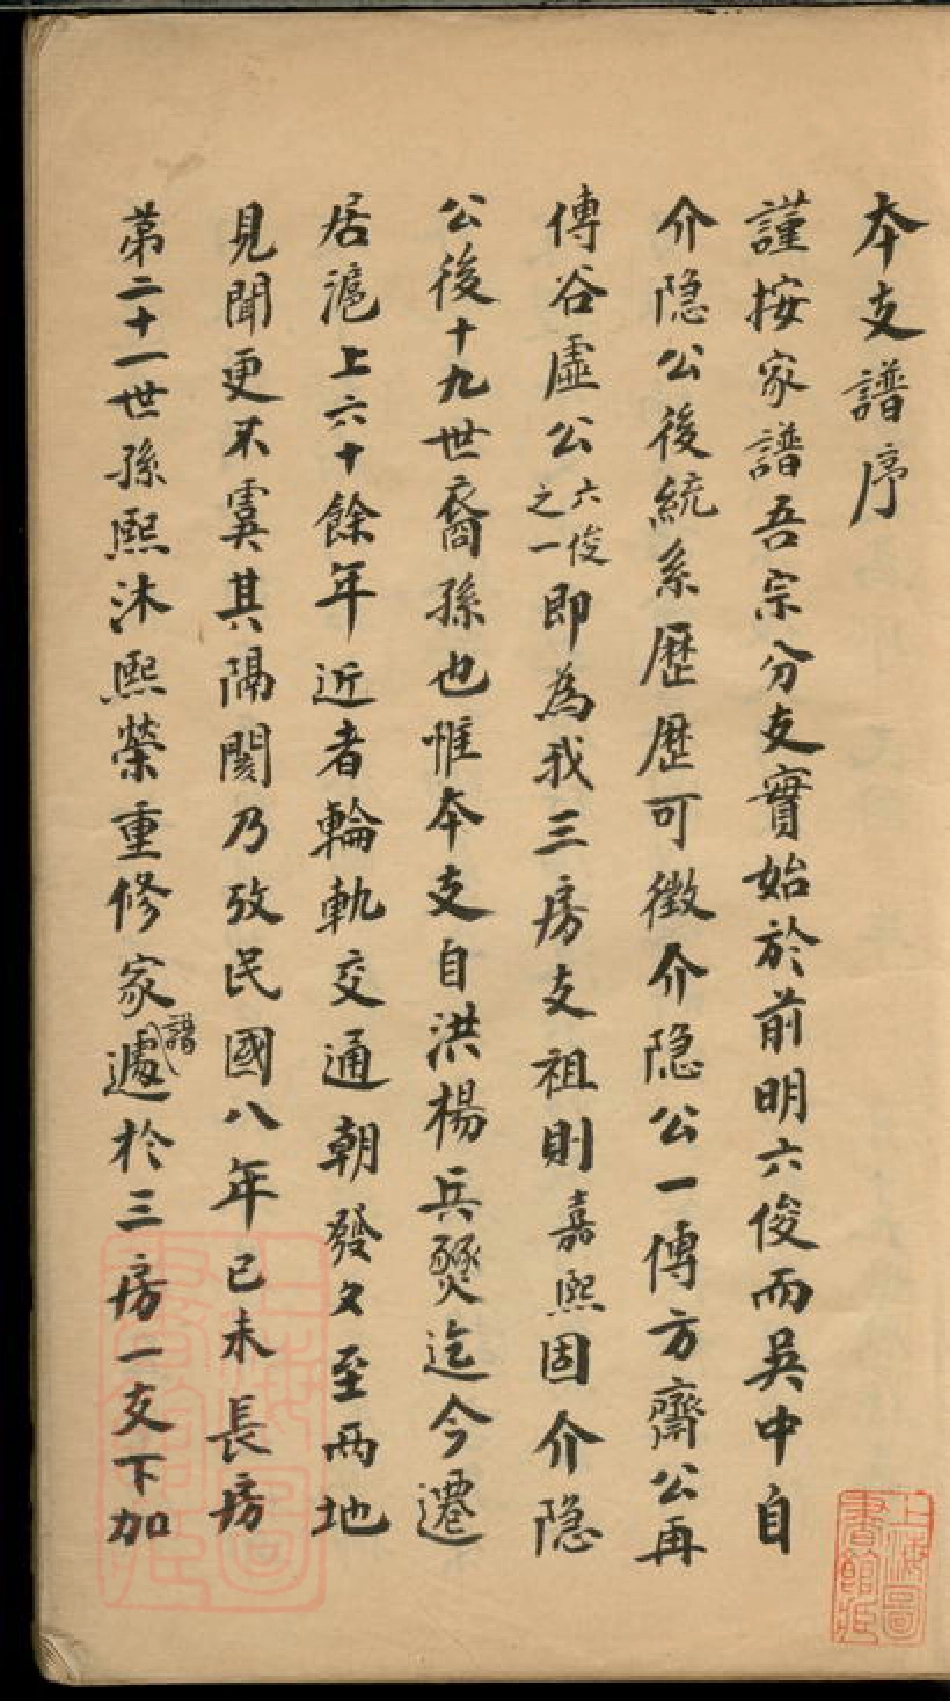 本支譜序
謹按家譜吾宗分支實始於前明六俊而吳中自
介隐公後統系歷歷可徵介隐公一傳方齋公再
傳谷虛公六俊之一即為我三房支祖則嘉熙固介隐
公後十九世裔孫也惟本支自洪楊兵燹迄今遷
居滬上六十餘年近者輪軌交通朝發夕至両地
見聞更不虞其隔閡乃攷民國八年己未長房
第二十一世孫熙沐熙榮重修家譜遽於三房一支下加
上海圖書館藏
上海圖書館藏